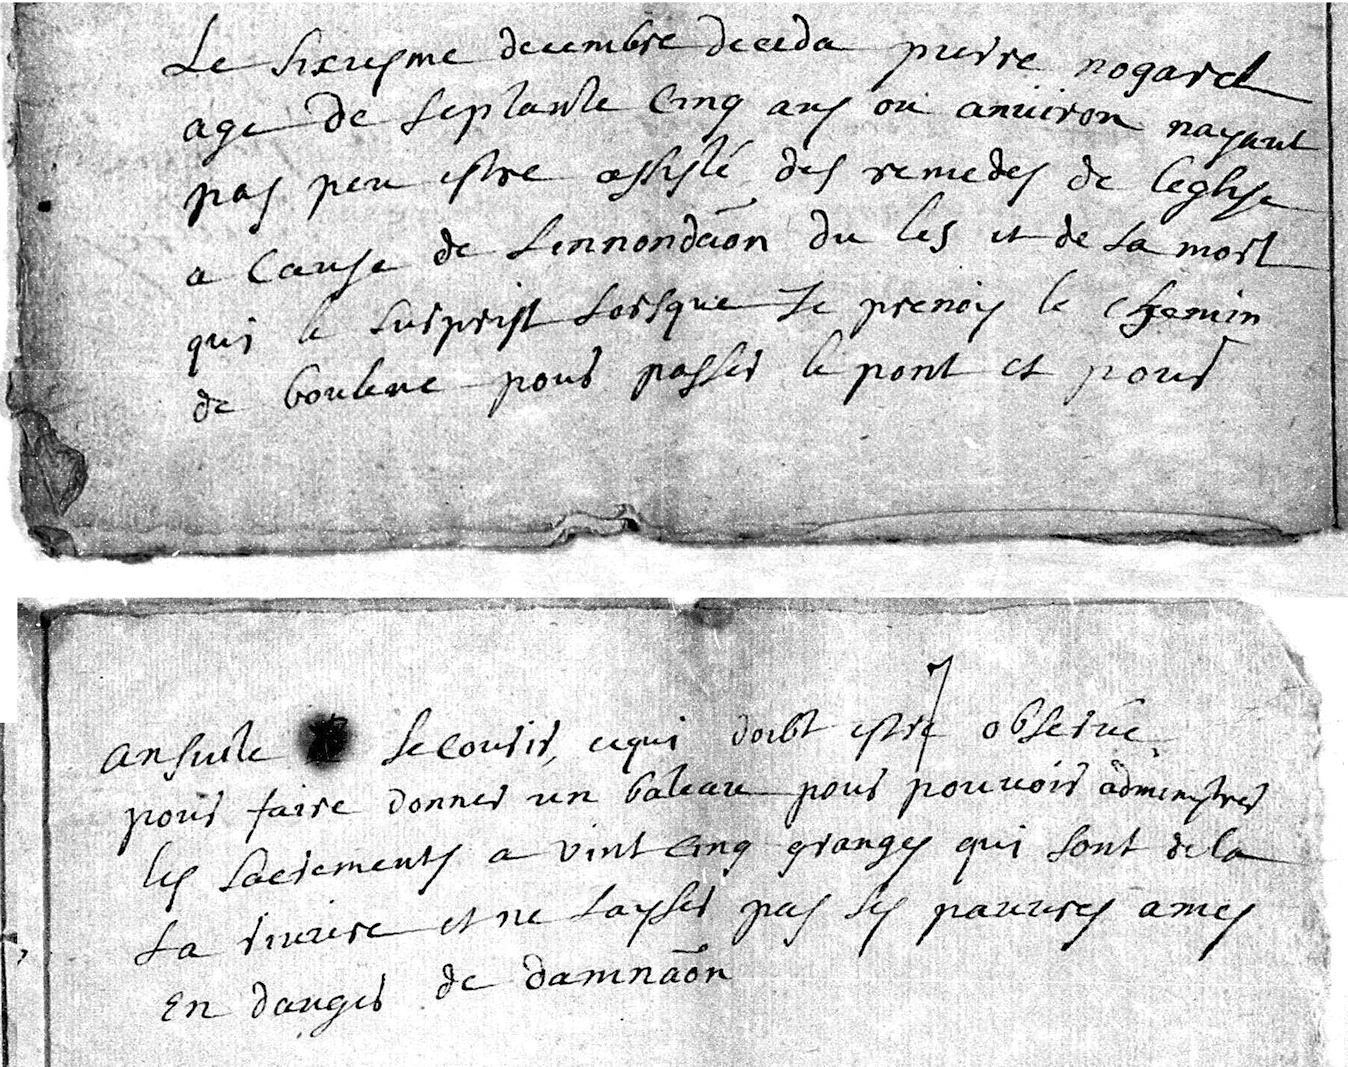 Le sixiesme decembre deceda pierre nogaret
age de septante cinq ans ou anuiron nayant
pas peu estre assisté des remedes de leglise
a cause de Linnondaõn du les et de La mort
qui le surprist Lorsque Je prenoy le chemin
de boulene pour passer le pont et pour
ansuite le courir, cequi doibt estre obserué
pour faire donner un bateau pour pouuoir administrer
les sacrements a vint cinq granges qui sont dela
La riuiere et ne Laysser pas les pauures ames
En danger de damnaõn